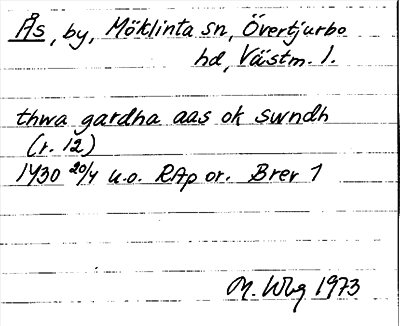 Ås, by, Möklinta sn, Övertjurbo
hd, Västm. l.
thwa gardha aas ok swndh
(r. 12)
1430 20/4 u.o. RAp or. Brev 1
M. Wbg 1973